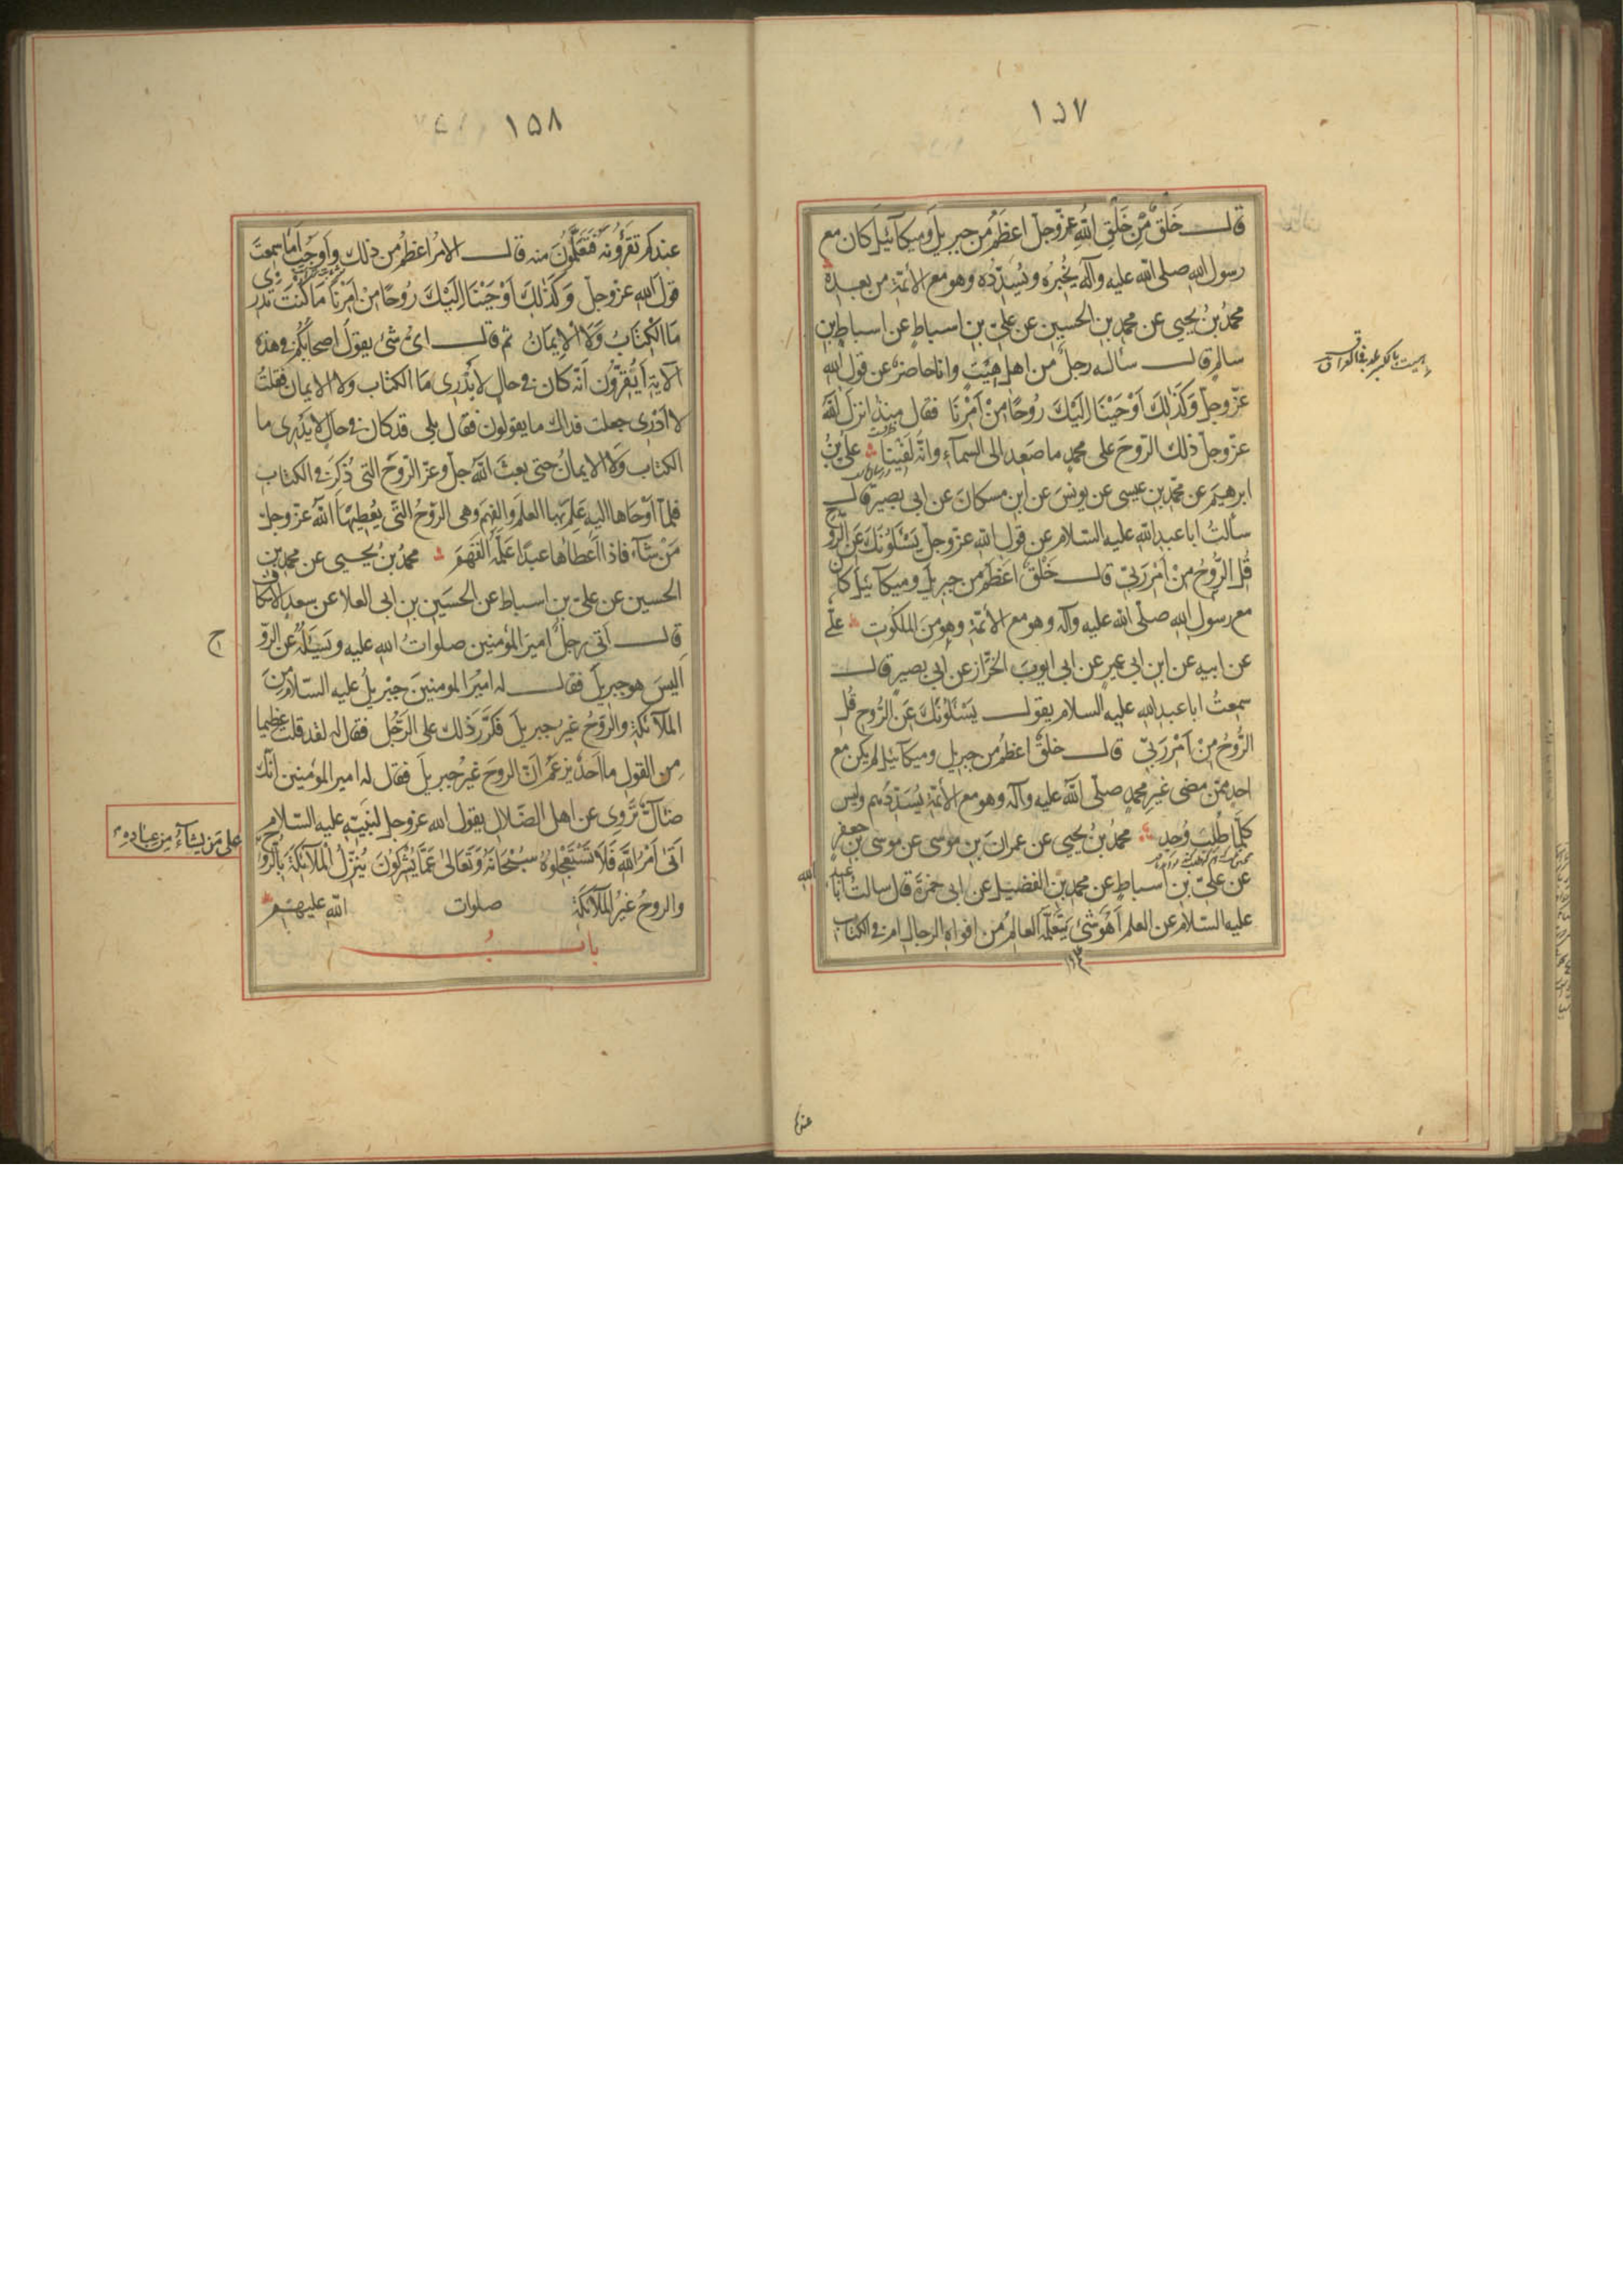 ١٥٧
قال خَلْقٌ مِّن خَلْقِ اللهِ عزّوجلّ اعظَمُ من جبريلَ وميكآئيلَ كان مع
رسول الله صلى الله عليه وآله يُخْبِرُه ويُسَدِّدُه وهو مع الأئمّة من بعده
محمّدُ بنُ يحيى عن محمّدِ بنِ الحسينِ عن علىِّ بنِ اسباطٍ عن اسباطِ بنِ
سالمٍ قال سأله رجلٌ من اهلِ هِيْتَ وانا حاضرٌ عن قول الله
عزّوجلّ وَكَذٰلِكَ اَوْحَيْنَا اِلَيْكَ رُوحًا مِنْ اَمْرِنَا فقال منذ انزل الله
عزّوجلّ ذلك الرّوحَ على محمدٍ ما صَعِدَ الى السمآءِ وانّه لَفينا علىُّ بنُ
ابرهيمَ عن محمّدِ بنِ عيسى عن يونسَ عن ابنِ مسكانَ عن ابى بصيرٍ قال
سألتُ اباعبدِالله عليه السلام عن قول الله عزّوجلّ يَسْئَلُونَكَ عَنِ الرُّوحِ
قُلِ الرُّوحُ مِنْ اَمْرِ رَبِّى قال خَلْقٌ اعظَمُ من جبريلَ وميكآئيلَ كان
مع رسول الله صلّى الله عليه وآله وهو مع الأئمّة وهو من الملكوتِ علىٌّ
عن ابيه عن ابنِ ابى عميرٍ عن ابى ايوبَ الخزّاز عن ابى بصيرٍ قال
سمعتُ اباعبدِالله عليه السلام يقول يَسْئَلُونَكَ عَنِ الرُّوحِ قُلِ
الرُّوحُ مِنْ اَمْرِ رَبِّى قال خلقٌ اعظمُ من جبريل وميكآئيل لم يكن مع
احدٍ ممّن مضى غيرِ محمدٍ صلّى الله عليه وآله وهو مع الأئمّة يُسَدِّدُهم وليس
كلّما طُلِبَ وُجِدَ محمدُ بنُ يحيى عن عمرانَ بنِ موسى عن موسى بنِ جعفرٍ
عن علىِّ بنِ اسباطٍ عن محمدِ بنِ الفضيل عن ابى حمزةَ قال سالتُ ابا عبد الله
عليه السّلام عن العلم اَهُوَ شئٌ يتعلّمه العالمُ من افواه الرجال ام فى الكتاب
١٥٨
عندكم تقرؤنه فتعلمون منه قال الامرُ اعظمُ من ذلك واَوْجَبُ اَما سمعتَ
قولَ الله عزّوجلّ وَكَذٰلِكَ اَوْحَيْنَا اِلَيْكَ رُوحًا مِنْ اَمْرِنَا مَا كُنْتَ تَدْرِى
مَا الْكِتَابُ وَلَا الْاِيمَانُ ثم قال اىُّ شئ يقولُ اصحابُكم فى هذه
الآية اَيُقِرّون انّه كان فى حالٍ لا يَدْرِى ما الكتاب ولا الايمان فقلتُ
لا اَدْرى جعلت فداك ما يقولون فقال بلى قد كان فى حالٍ لا يَدْرى ما
الكتاب ولا الايمانُ حتى بعث الله جلّ وعزّ الرّوحَ التى ذُكِرَ فى الكتاب
فلمّا اَوْحَاها اليه عَلِمَ بها العلمَ والفهمَ وهى الرّوحُ التى يُعْطِيهَا اللهُ عزّوجلّ
مَنْ شآءَ فاذا اَعطاها عبدًا عَلَّمَه الفَهمَ محمدُ بنُ يحيى عن محمدِ بن
الحسين عن علىِّ بنِ اسباط عن الحسين بنِ ابى العلا عن سعدٍ الاسكاف
قال اَتى رجلٌ اميرَ المؤمنين صلواتُ الله عليه ويَسْئَلُه عن الرّوح
اليسَ هو جبريلَ فقال له اميرُ المومنينَ جبْريلُ عليه السّلام مِنَ
الملآئكةِ والرّوحُ غير جبريلَ فكَرَّرَ ذلك على الرّجُل فقال له لقد قلت عظيما
مِن القول ما احَدٌ يزعمُ انّ الروحَ غيرُ جبريلَ فقال له امير المؤمنين انّك
ضآلٌّ تَروى عن اهل الضّلال يقول الله عزّوجلّ لنبيّه عليه السّلام
اَتىٰ اَمْرُ اللهِ فَلَا تَسْتَعْجِلُوهُ سُبْحَانَهُ وَتَعَالىٰ عَمَّا يُشْرِكُونَ يُنَزِّلُ الْمَلآئِكَةَ بِالرُّوحِ
على مَن يشآءُ مِن عبادِه
والروحُ غيرُ الملآئكة صلوات الله عليهم
بابُ